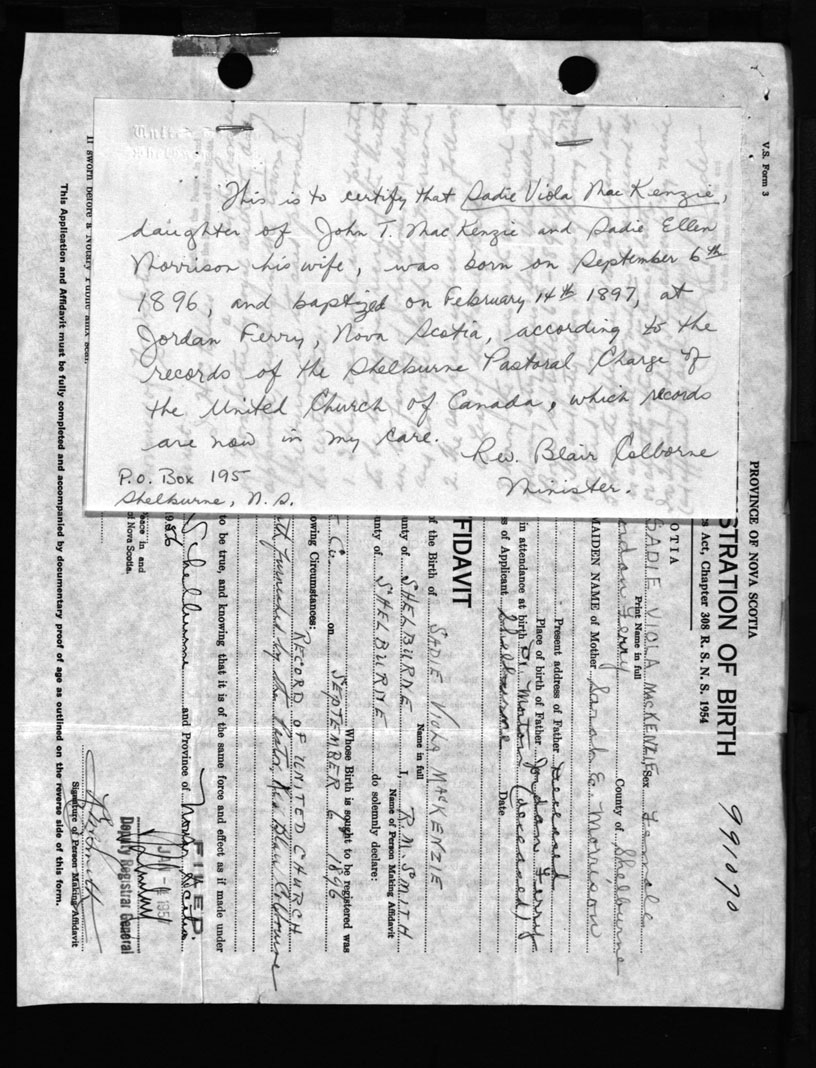 This is to certify that Sadie Viola MacKenzie,
daughter of John T. MacKenzie and Sadie Ellen
Morrison his wife, was born on September 6th
1896, and baptized on February 14th 1897, at
Jordan Ferry, Nova Scotia, according to the
records of the Shelburne Pastoral Charge of
the United Church of Canada, which records
are now in my care.
Rev. Blair Colborne
Minister.
P.O. Box 195
Shelburne, N.S.
V.S. Form 3
PROVINCE OF NOVA SCOTIA
STRATION OF BIRTH
s Act, Chapter 308 R. S. N. S. 1954
991090
OTIA
SADIE VIOLA MACKENZIE Sex Female
Print Name in full
Jordan Ferry County of Shelburne
MAIDEN NAME of Mother Sarah E. Morrison
Present address of Father Deceased
Place of birth of Father Jordan Ferry
in attendance at birth Dr. Morton (deceased)
s of Applicant Shelburne Date
FIDAVIT
f the Birth of SADIE VIOLA MACKENZIE
Name in full
unty of SHELBURNE I, R. M. SMITH
Name of Person Making Affidavit
unty of SHELBURNE do solemnly declare:
Whose Birth is sought to be registered was
Co. on SEPTEMBER 6 1896
owing Circumstances:
RECORD OF UNITED CHURCH
furnished by the Pastor, Rev Blair Colborne
to be true, and knowing that it is of the same force and effect as if made under
FILED
Shelburne and Province of Nova Scotia
1956
JAN
Deputy Registrar General
eace in and
of Nova Scotia.
Signature of Person Making Affidavit
If sworn before a Notary Public affix seal.
This Application and Affidavit must be fully completed and accompanied by documentary proof of age as outlined on the reverse side of this form.